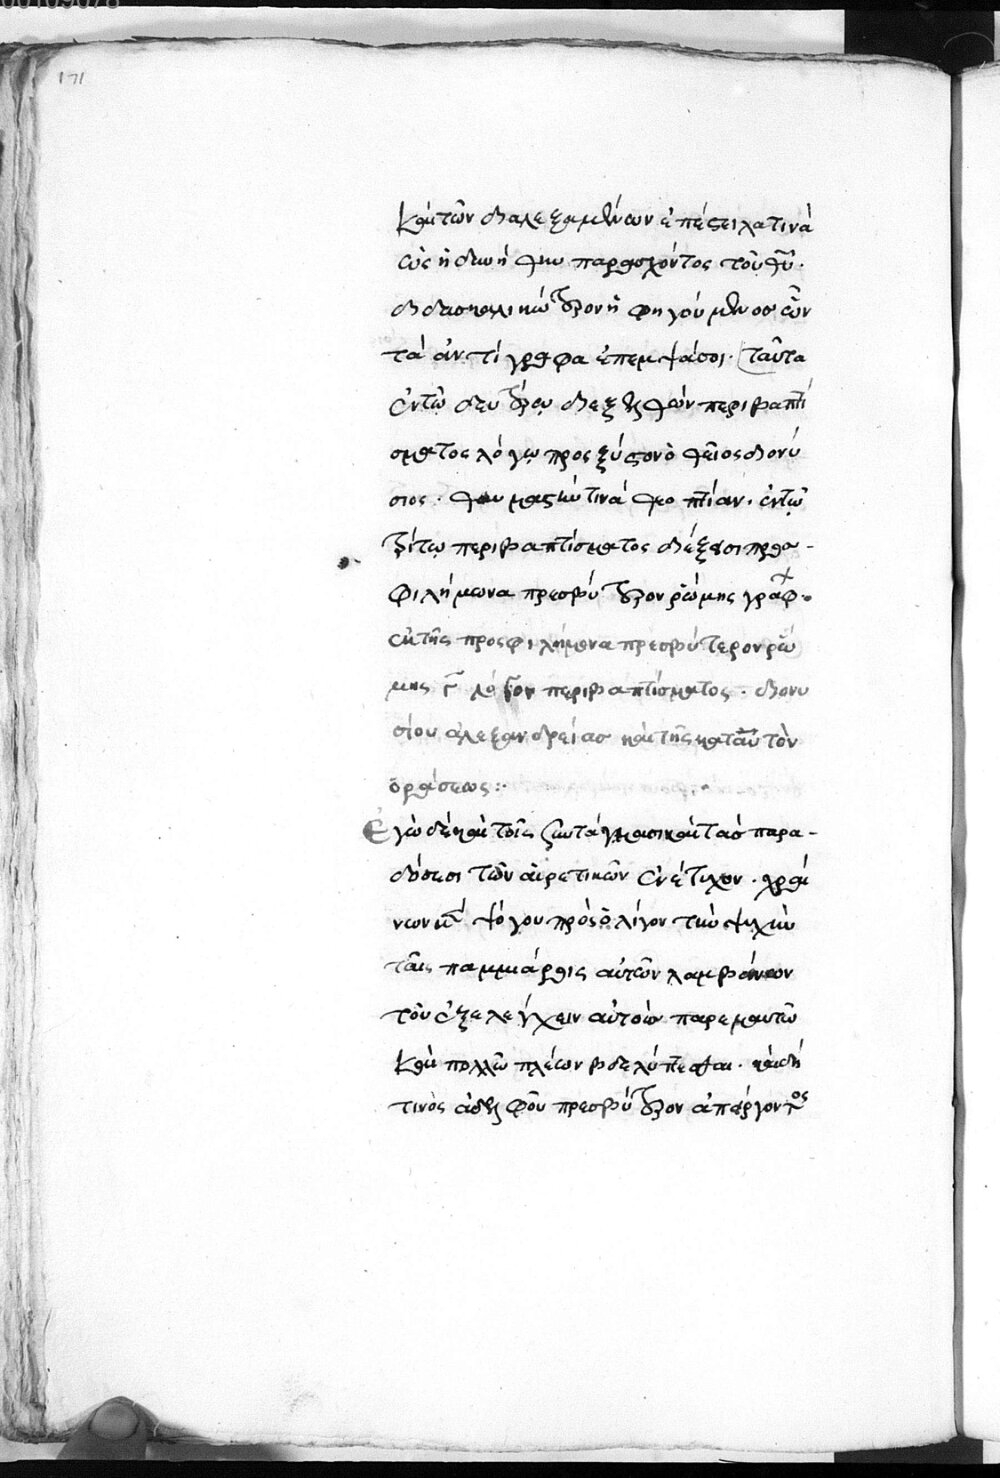 171
καὶ τῶν διαλεξαμένων ἐπέστειλα τινὰ
ὡς ἠδυνήθην παρασχόντος τοῦ θῦ.
διδασκαλικώτερον ὑφηγούμενος ὧν
τὰ ἀντίγραφα ἔπεμψά σοι. ταῦτα
ἐν τῷ δευτέρῳ διεξελθὼν περὶ βαπτί
σματος λόγῳ πρὸς ξύστον ὁ θεῖος διονύ
σιος.
τρίτῳ περὶ βαπτίσματος διέξεισι πρὸς
φιλήμωνα πρεσβύτερον ῥώμης γράφ
ἐκ τῆς πρὸς φιλήμονα πρεσβύτερον ῥώ
μης γ λόγον περὶ βαπτίσματος. διονυ
σίου ἀλεξανδρείας καὶ τῆς κατ αὐτὸν
ὁράσεως:
Ἐγὼ δὲ καὶ τοῖς συντάγμασι καὶ ταῖς παρα-
δόσεσι τῶν αἱρετικῶν ἐνέτυχον. χραί
νων μὲν ψόγου πρὸς ὀλίγον τὴν ψυχὴν
ταῖς παμμιάροις αὐτῶν λαμβάνων
τοῦ ἐξελέγχειν αὐτοὺς παρεμαυτῶ
καὶ πολλῶ πλέων βδελύττεσθαι. καὶ δή
τινος ἀδελφοῦ πρεσβύτερον ἀπείργοντος